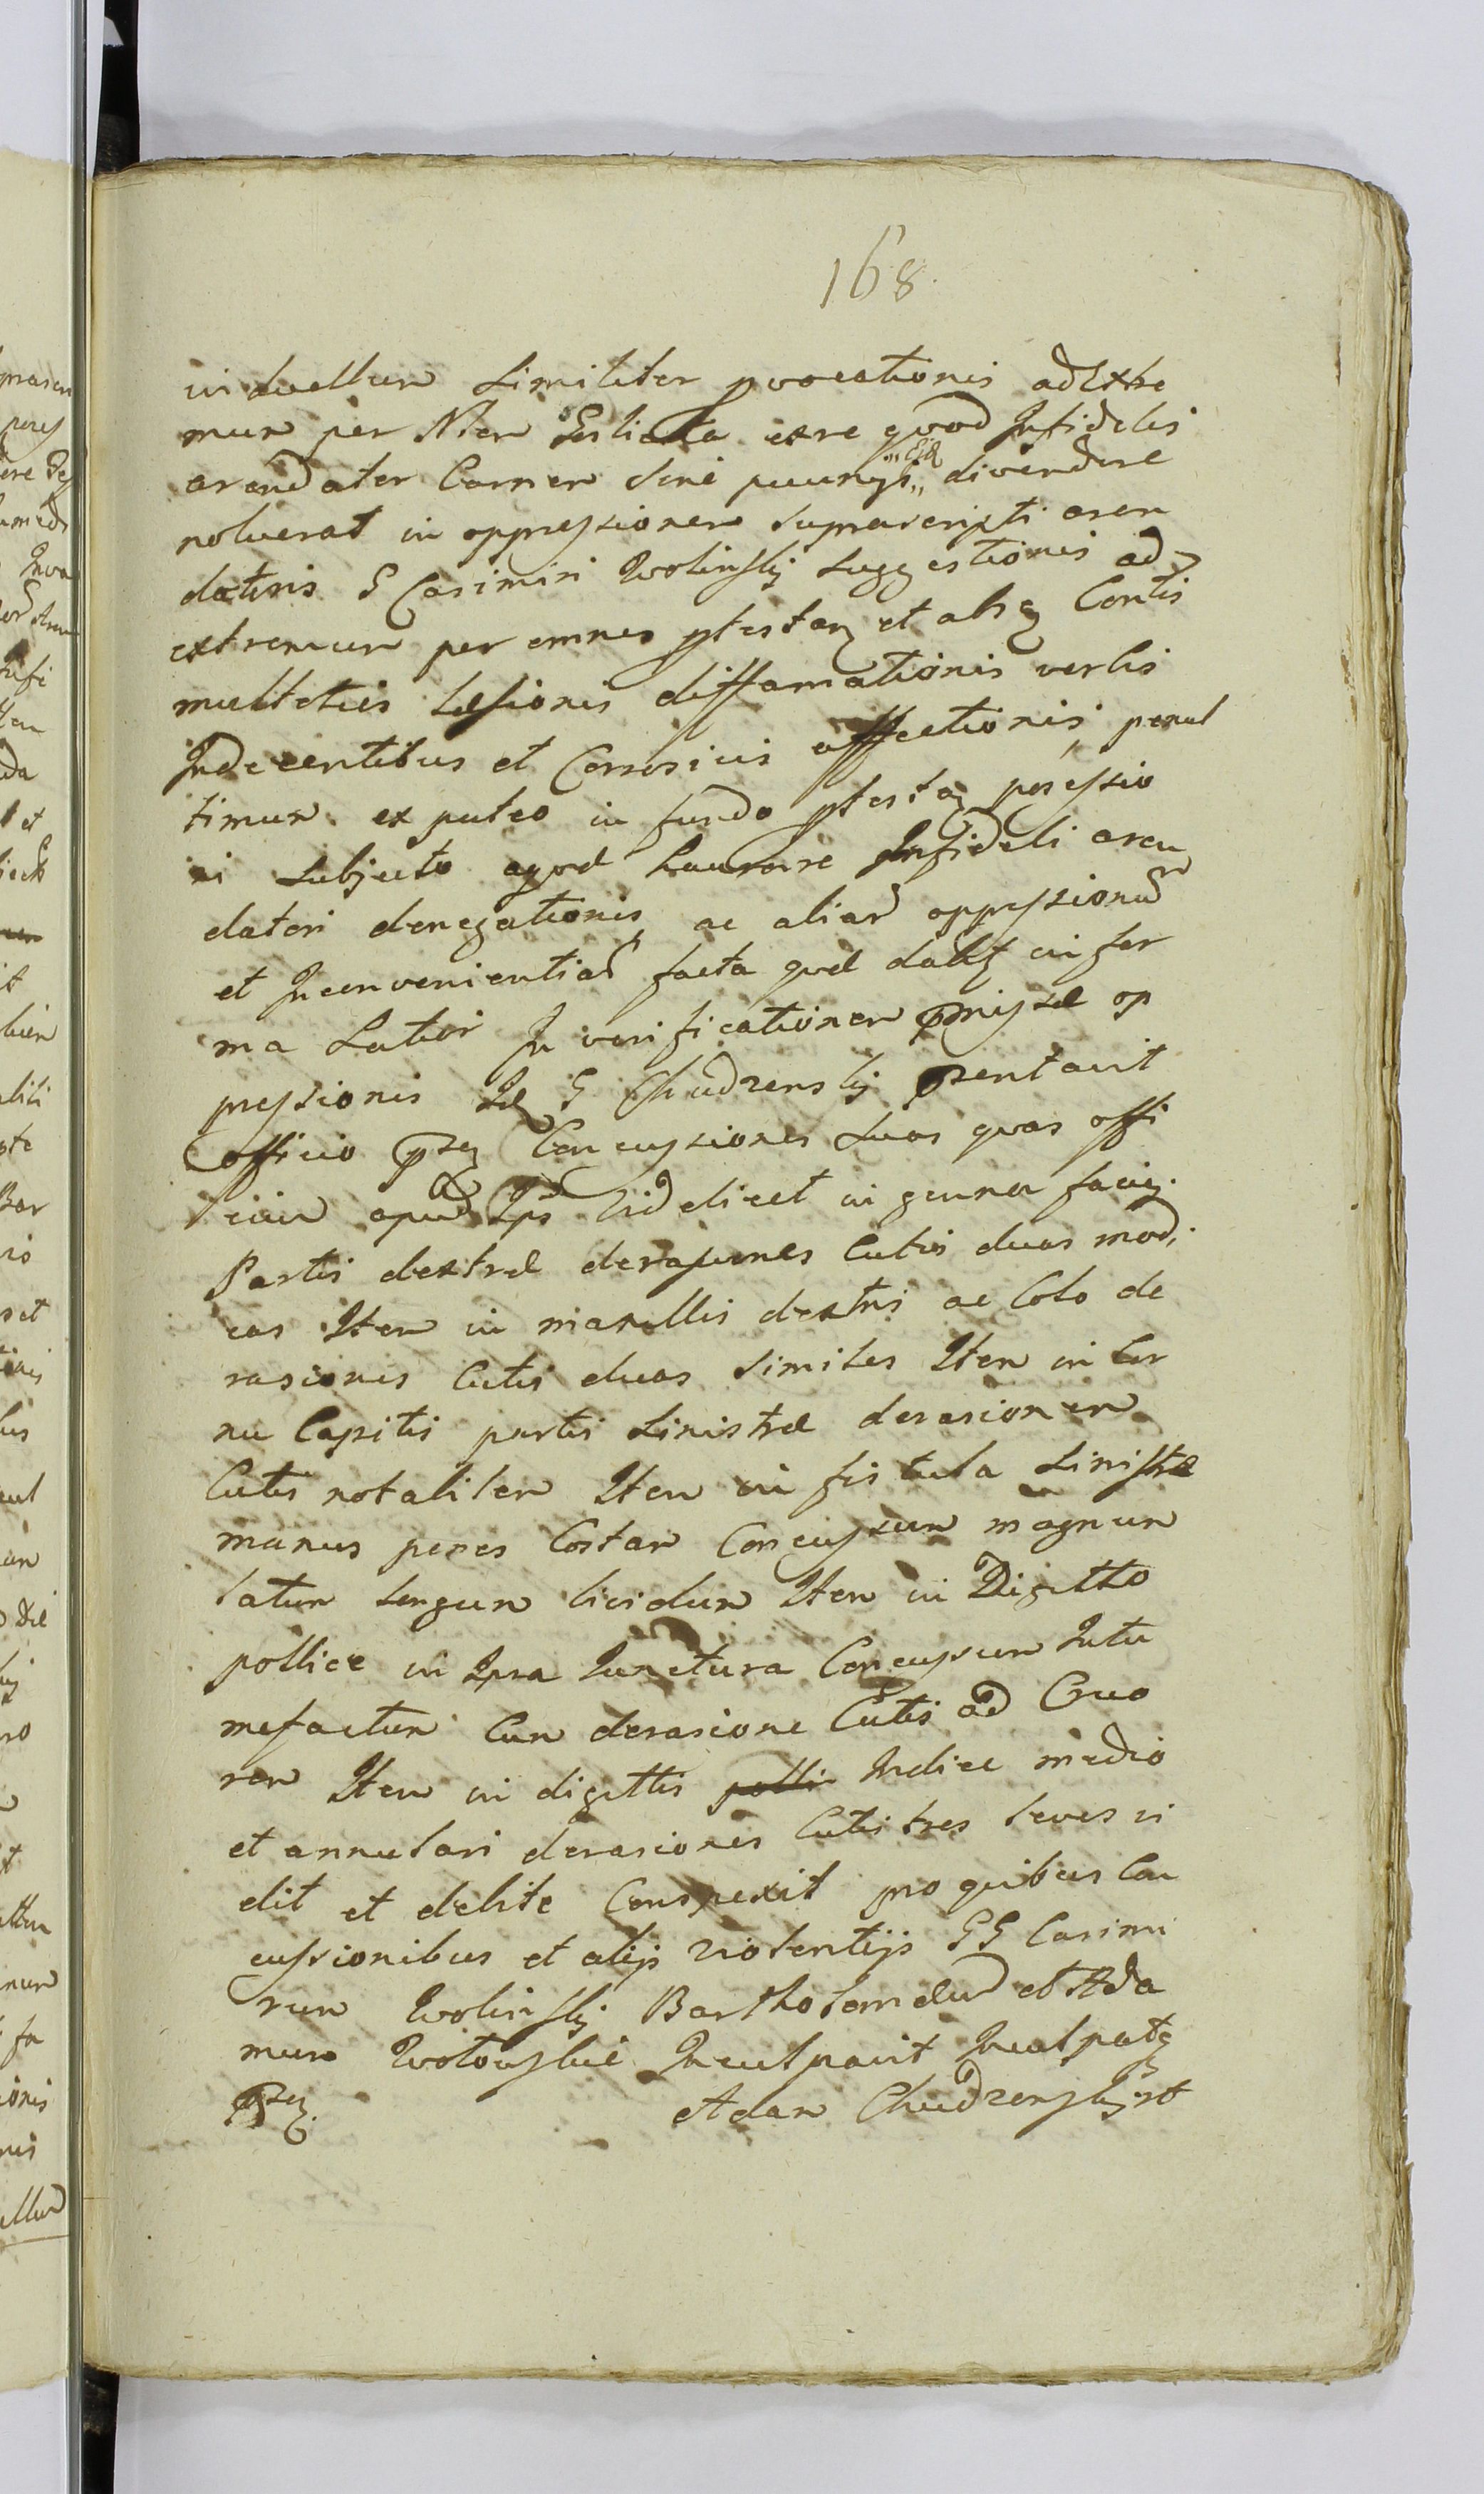 168.
in duellum Similiter pvocationis ad Extre
mum per Nten Gslicta exre quod Infidelis
arendator Carnem sine pecunijs Ejd divendere
noluerat in oppressionem supra scripti aren
datoris G Casimiri Wolinskj suggestionis ad
extremum per omnes ptestas et absq Contis
multoties Læsionis diffamationis verbis
Indecentibus et Corrosivis affectionis, penul
timum ex puteo in fundo ptestaq possessio
ni subjecto aqvæ haurire Infideli aren
datori denegationis ac aliar oppressionu
et Inconvenientiar facta qvæ dabit in for
ma Latior In verificationem pmissæ op
pressionis Id G Chudzenskj psentavit
officio psq Concussiones suas qvas offi
cium apud Ips Videlicet in genna faciej
Partis dextræ derasiones Cutis duas modi
cas Item in maxillis dextris ac Colo de
rasionis Cutis duas similes Item in Cor
nu Capitis partis sinistræ derasionem
Cutis notabilem Item in fistula sinistræ
manus penes Costam Concussum magnum
latum Longum lividum Item in Digitto
pollice in Ipsa Iunctura Concussum Intu
mefactum Cum derasione Cutis ad Cruo
rem Item in digittis polli Indice medio
et annulari derasiones Cutis tres leves vi
dit et debite Conspexit pro quibus Con
cussionibus et alijs violentijs GG Casimi
rum Wolinskj Bartholomæu et Ada
mum Wolowskie Inculpavit Inculpatq
psq.
Adam Chudzenskj st